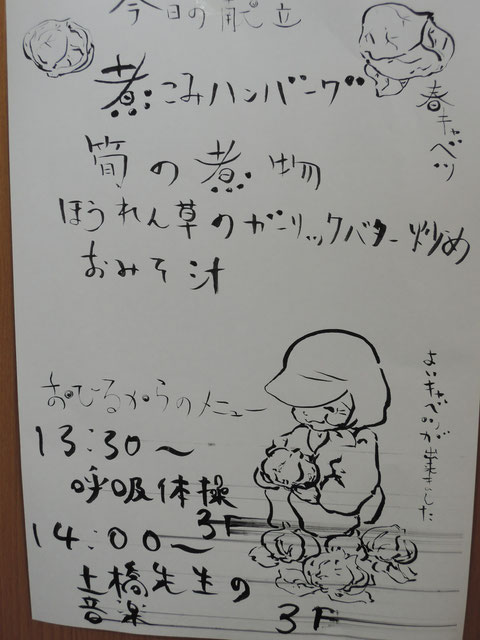 今日の献立
春キャベツ
煮こみハンバーグ
筍の煮物
ほうれん草のガーリックバター炒め
おみそ汁
よいキャベツが出来ました
おひるからのメニュー
13:30〜
呼吸体操
3F
14:00〜
土橋先生の
音楽
3F